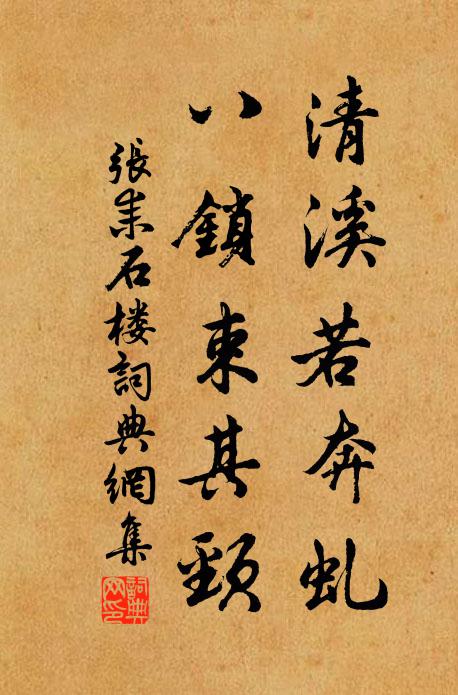 清溪若奔虬
八鎖束其頸
張耒石楼詞典網集
詞典網印